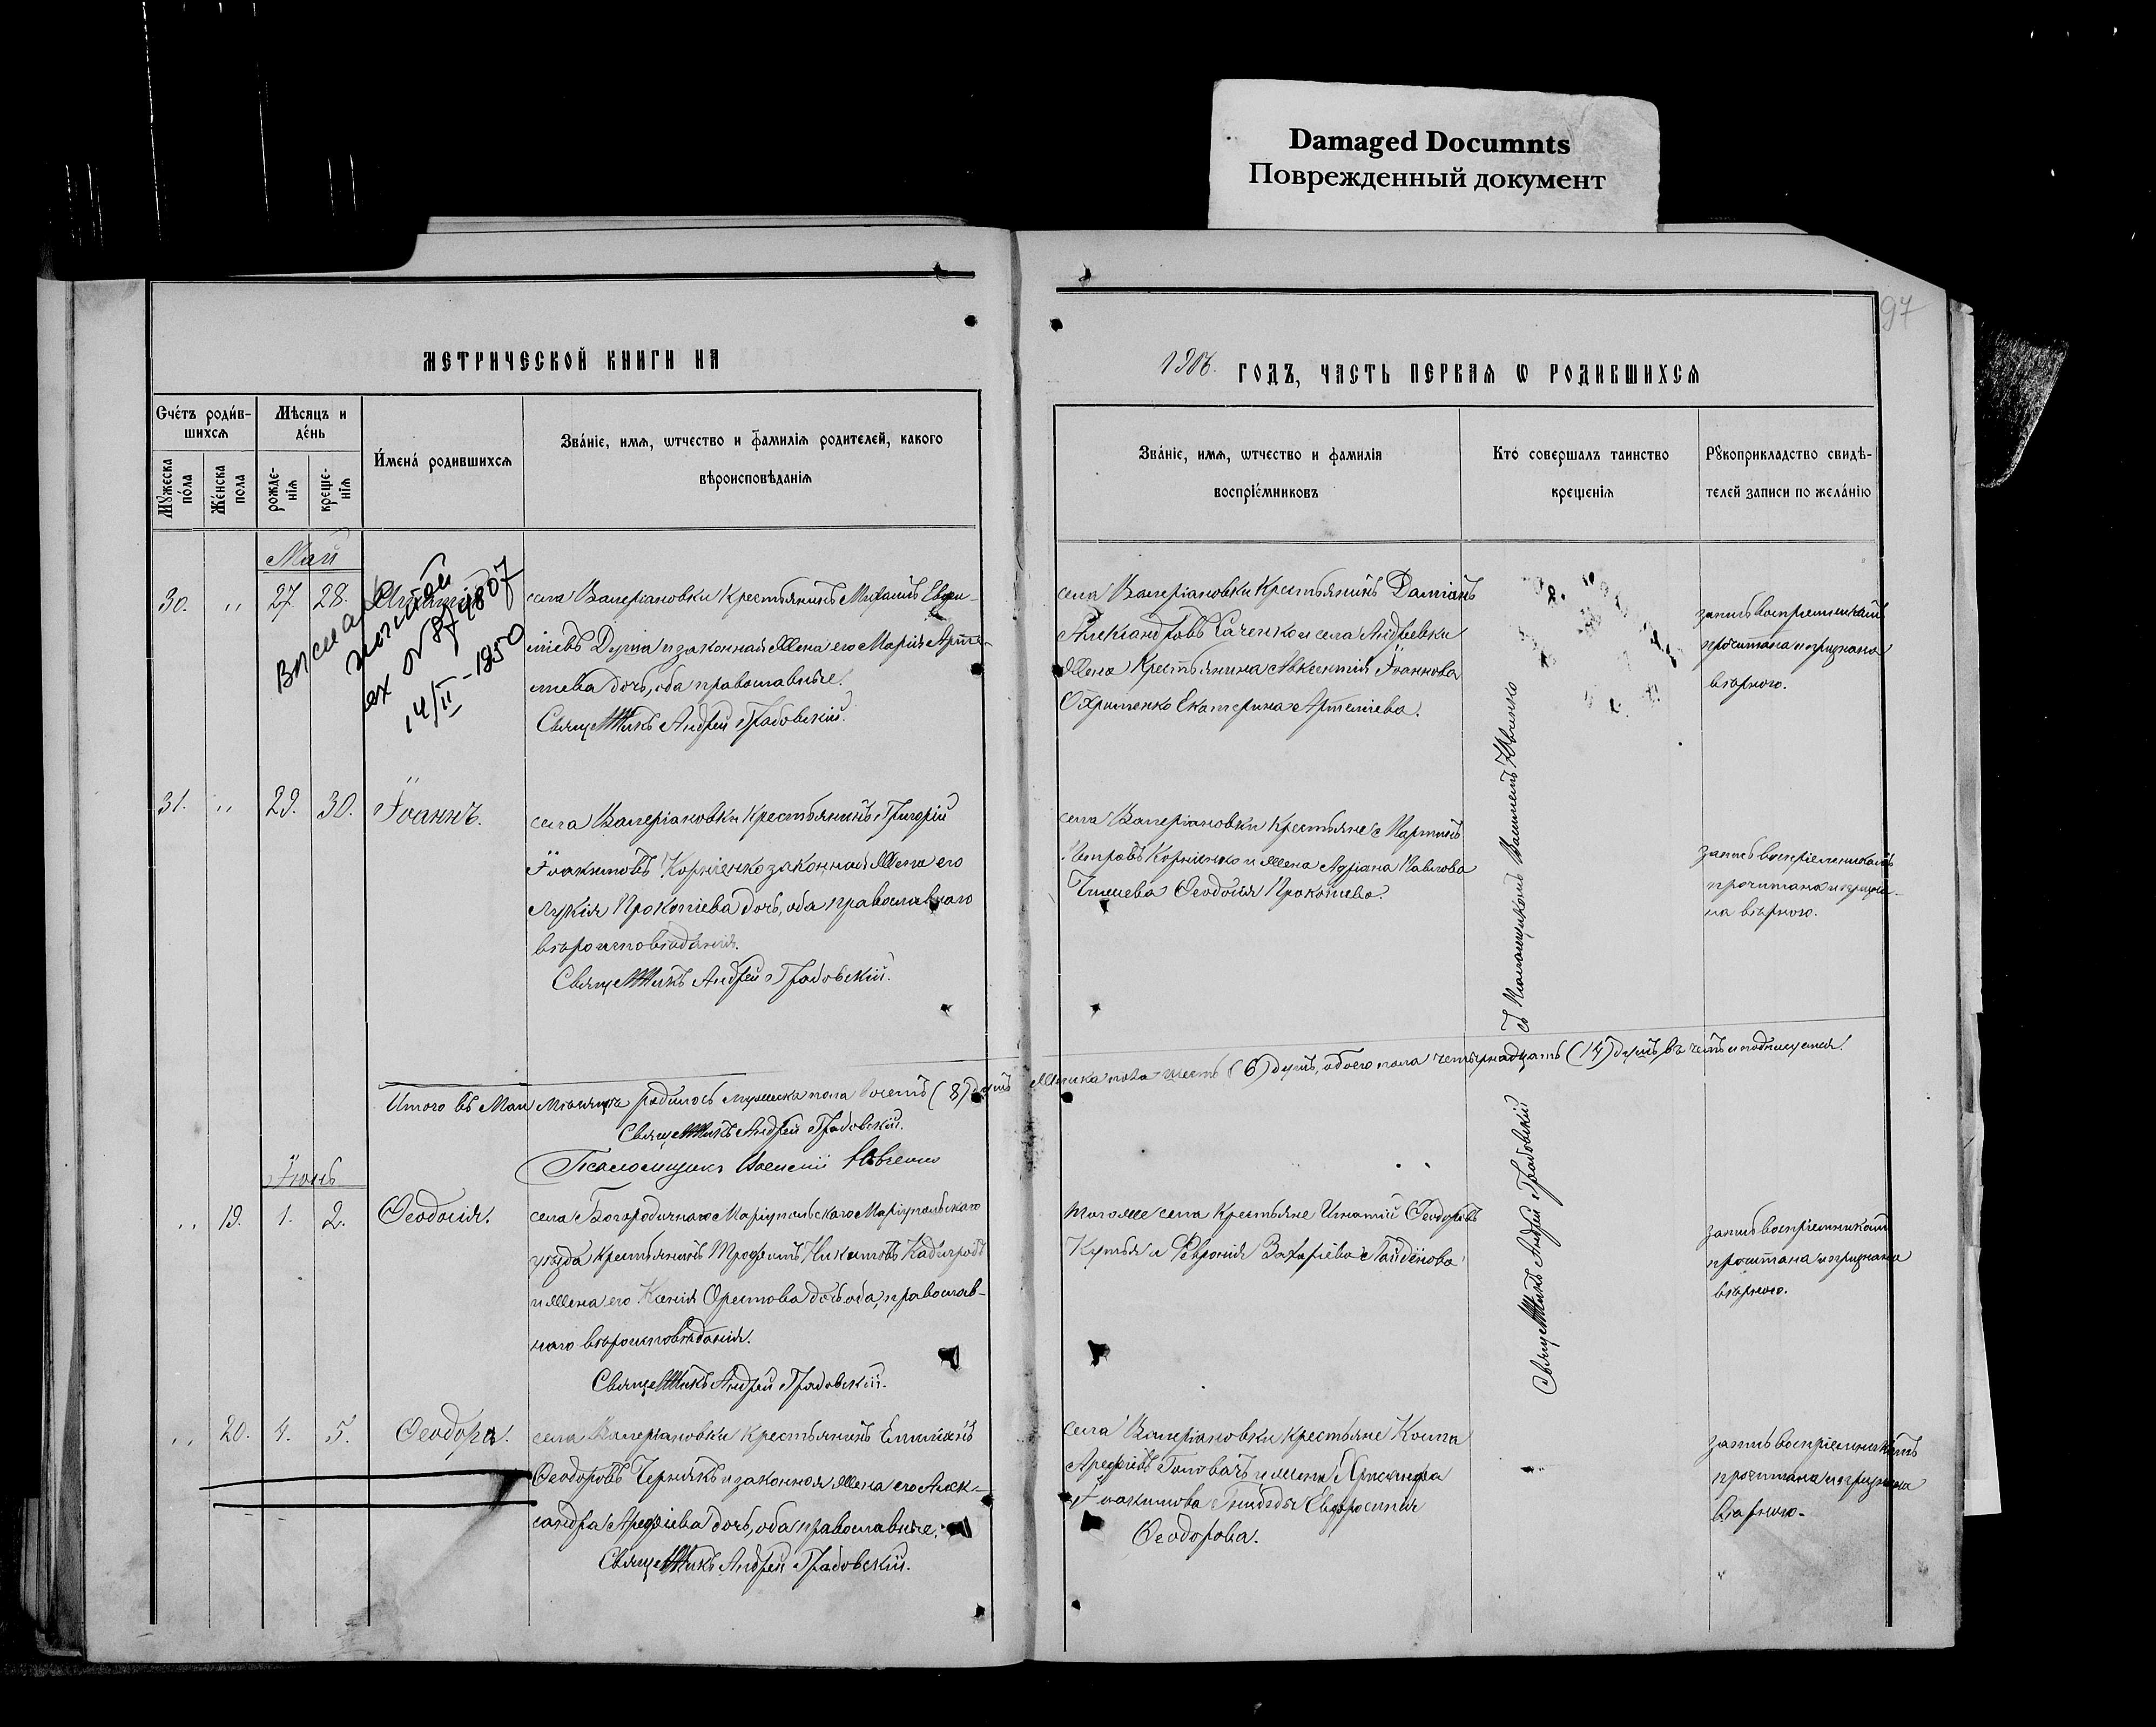 Damaged Documnts
Поврежденный документ
97
МЕТРИЧЕСКОЙ КНИГИ НА
1906. ГОДЪ, ЧАСТЬ ПЕРВАЯ Ѡ РОДИВШИХСЯ
Счéтъ роди́в-
шихся
Мѣсяцъ и
дéнь
Мꙋжеска
пóла
Жéнска
пола
рожде-
нія
креще-
нія
И́менá родившихся
Звáніе, имя, ѡтчество и фамилія родителей, какого
вѣроисповѣданія
Звáніе, имя, ѡтчество и фамилія
воспріéмниковъ
Ктó совершалъ таинство
крещенія
Рꙋкоприкладство свидѣ-
телей записи по желáнію
Май
30. " 27. 28.
14/II-1950
села Валеріановки крестьянинъ Михаилъ Евфи-
міевъ Дупа и законная жена его Марія Арте-
міева дочь, оба православные.
Священникъ Андрей Грабовскій.
села Валеріановки крестьянинъ Даміанъ
Александровъ Саченко и села Андреевки
жена крестьянина Авксентія Іоаннова
Охрименко Екатерина Артеміева.
запись воспріемникамъ
прочитана и признана
вѣрною.
31. " 29. 30. Іоаннъ.
села Валеріановки крестьянинъ Григорій
Іоакимовъ Корніенко законная жена его
Лукія Прокопіева дочь, оба православнаго
вѣроисповѣданія.
Священникъ Андрей Грабовскій.
села Валеріановки крестьяне Мартинъ
Петровъ Корніенко и жена Адріана Павлова
Феодосія Прокопіева.
запись воспріемникамъ
прочитана и призна-
на вѣрною.
Священникъ Андрей Грабовскій съ Псаломщикомъ
Итого въ Маѣ мѣсяцѣ родилось мужеска пола восемь (8) душъ женска пола шесть (6) душъ, обоего пола четырнадцать (14) душъ, въ чемъ и подписуемся.
Священникъ Андрей Грабовскій.
Псаломщикъ
Іюнь
" 19. 1. 2. Ѳеодосія.
села Богородичнаго Маріупольскаго Маріупольскаго
уѣзда крестьянинъ Трофимъ Никитовъ
и жена его Ксенія Орестова дочь, оба православ-
наго вѣроисповѣданія.
Священникъ Андрей Грабовскій.
того же села крестьяне Игнатій Ѳеодоровъ
Кутья и Февронія Захаріева Гайденова
запись воспріемникамъ
прочитана и признана
вѣрною.
" 20. 4. 5. Ѳеодора.
села Валеріановки крестьянинъ Емиліанъ
Ѳеодоровъ Чернякъ и законная жена его Алек-
сандра Арефіева дочь, оба православные.
Священникъ Андрей Грабовскій.
села Валеріановки крестьяне Косма
Арефіевъ Головачъ и жена
Іоакимова Евфросинія
Ѳеодорова.
запись воспріемникамъ
прочитана и признана
вѣрною.